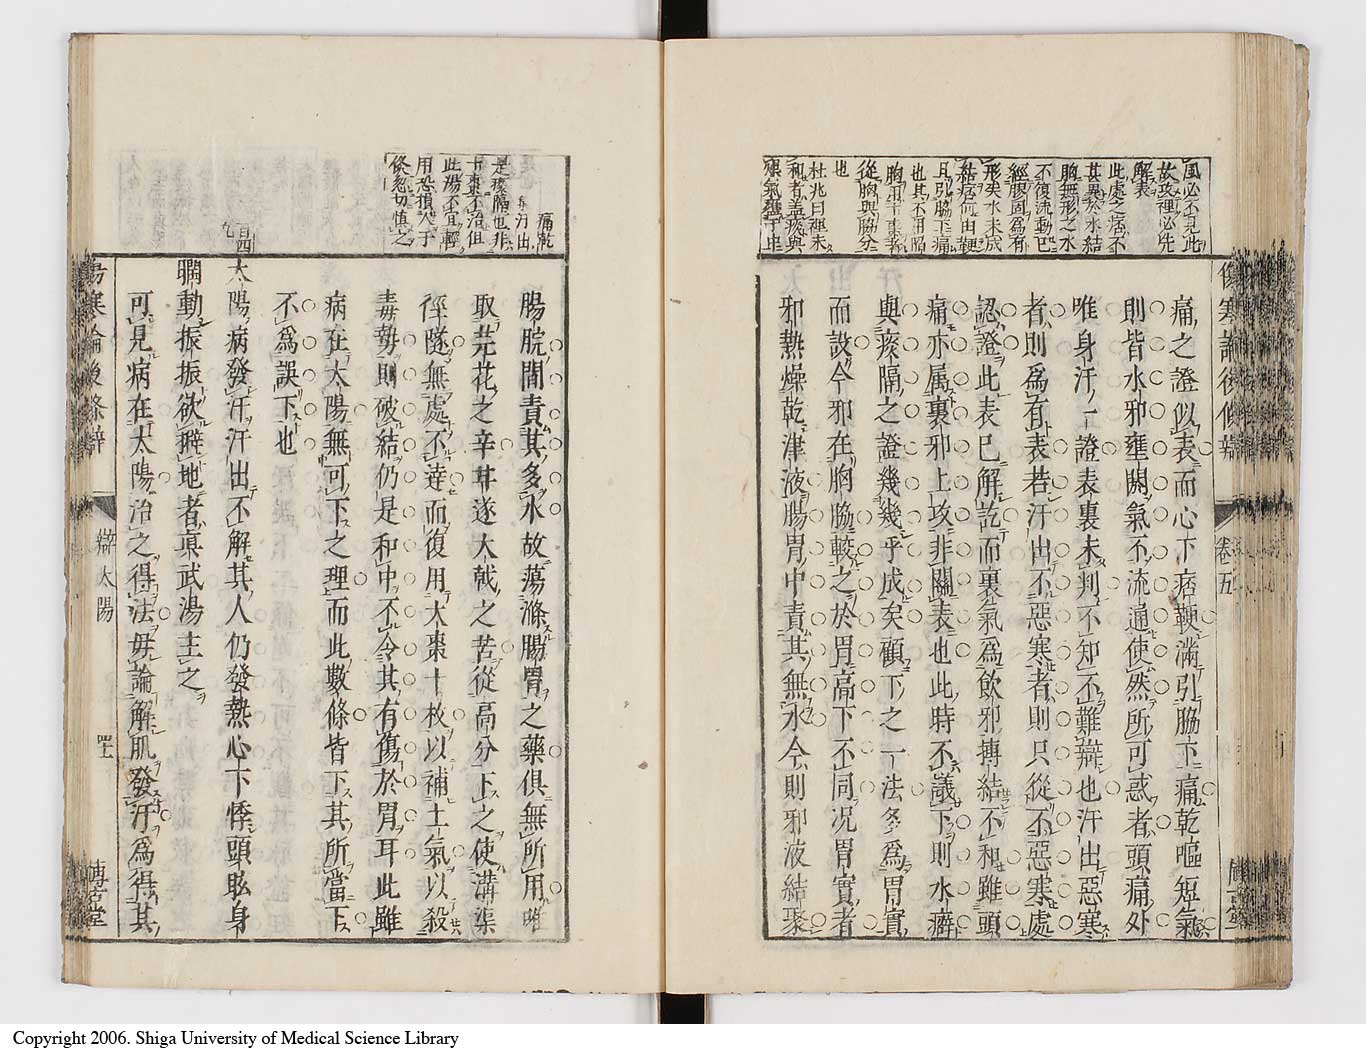 傷寒論後條辨
卷五
風必不惡此
故攻裡必先
解表
此處之痞不
甚異於水結
胸無形之水
不復流動已
經膈固為有
形矣水未成
結痞何由鞕
且引脇下痛
也其不用陷
胸用十棗者
從胸與脇分
也
杜兆曰裡未
和者蓋痰與
燥氣壅于中
痛之證似表而心下痞鞕滿引脇下痛乾嘔短氣
則皆水邪壅閼氣不流通使然所可惑者頭痛外
唯身汗一證表裏未判不知不難辯也汗出惡寒
者則爲有表若汗出不惡寒者則只從不惡寒處
認證此表已解訖而裏氣爲飲邪摶結不和雖頭
痛亦属裏邪上攻非關表也此時不議下則水癖
與痰隔之證幾幾乎成矣顧下之一法多爲胃實
而設今邪在胸脇較之於胃高下不同况胃實者
邪熱燥乾津液腸胃中責其無水今則邪液結聚
痛乾
汗出
是痰隔也非
十棗不治但
此湯不宜輕
用恐損人于
倐忽切慎之
腸脘間責其多水故蕩滌腸胃之藥俱無所用唯
取芫花之辛甘遂大戟之苦從高分下之使溝渠
徑隧無處不達而復用大棗十枚以補土氣以殺
毒勢則破結仍是和中不令其有傷於胃耳此雖
病在太陽無可下之理而此數條皆下其所當下
不爲誤下也
百四
九
太陽病發汗汗出不解其人仍發熱心下悸頭眩身
瞤動振振欲擗地者眞武湯主之
可見病在太陽治之得法毋論解肌發汗爲得其
傷寒論後條辨
辯太陽
罡
博古堂
Copyright 2006. Shiga University of Medical Science Library